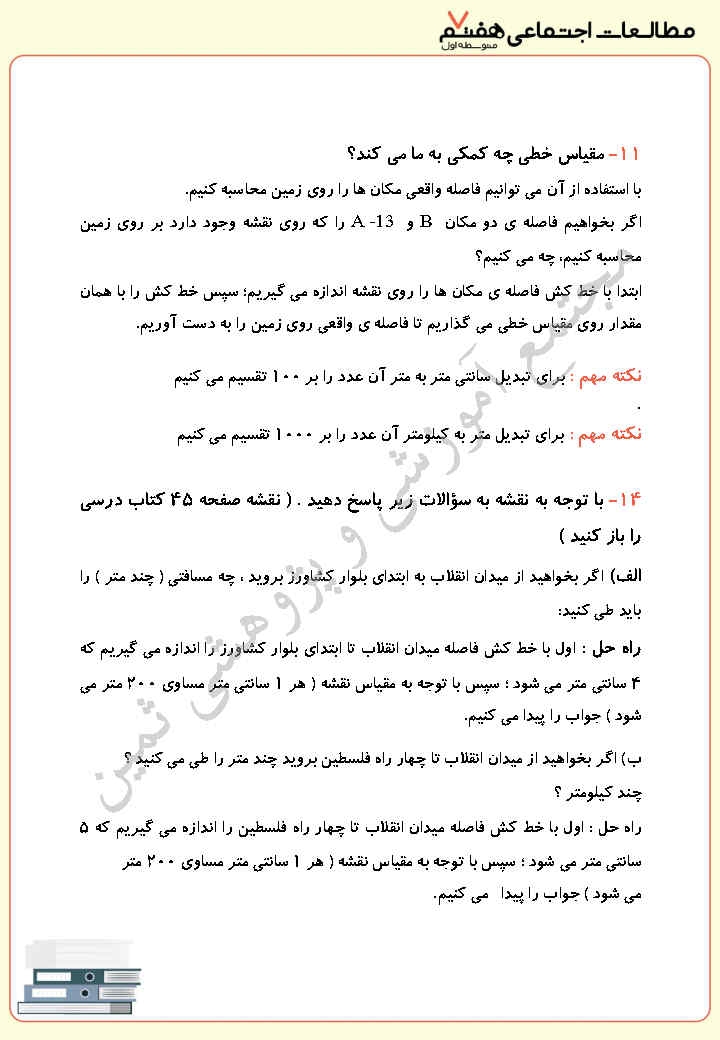 مطالعات اجتماعی هفتم
۷
متوسطه اول
۱۱- مقیاس خطی چه کمکی به ما می کند؟
با استفاده از آن می توانیم فاصله واقعی مکان ها را روی زمین محاسبه کنیم.
اگر بخواهیم فاصله ی دو مکان B و A -13 را که روی نقشه وجود دارد بر روی زمین
محاسبه کنیم، چه می کنیم؟
ابتدا با خط کش فاصله ی مکان ها را روی نقشه اندازه می گیریم؛ سپس خط کش را با همان
مقدار روی مقیاس خطی می گذاریم تا فاصله ی واقعی روی زمین را به دست آوریم.
نکته مهم : برای تبدیل سانتی متر به متر آن عدد را بر ۱۰۰ تقسیم می کنیم
.
نکته مهم : برای تبدیل متر به کیلومتر آن عدد را بر ۱۰۰۰ تقسیم می کنیم
۱۴- با توجه به نقشه به سؤالات زیر پاسخ دهید . ( نقشه صفحه ۴۵ کتاب درسی
را باز کنید )
الف) اگر بخواهید از میدان انقلاب به ابتدای بلوار کشاورز بروید ، چه مسافتی ( چند متر ) را
باید طی کنید:
راه حل : اول با خط کش فاصله میدان انقلاب تا ابتدای بلوار کشاورز را اندازه می گیریم که
۴ سانتی متر می شود ؛ سپس با توجه به مقیاس نقشه ( هر ۱ سانتی متر مساوی ۲۰۰ متر می
شود ) جواب را پیدا می کنیم.
ب) اگر بخواهید از میدان انقلاب تا چهار راه فلسطین بروید چند متر را طی می کنید ؟
چند کیلومتر ؟
راه حل : اول با خط کش فاصله میدان انقلاب تا چهار راه فلسطین را اندازه می گیریم که ۵
سانتی متر می شود ؛ سپس با توجه به مقیاس نقشه ( هر ۱ سانتی متر مساوی ۲۰۰ متر
می شود ) جواب را پیدا می کنیم.
مجتمع آموزشی و پژوهشی ثمین